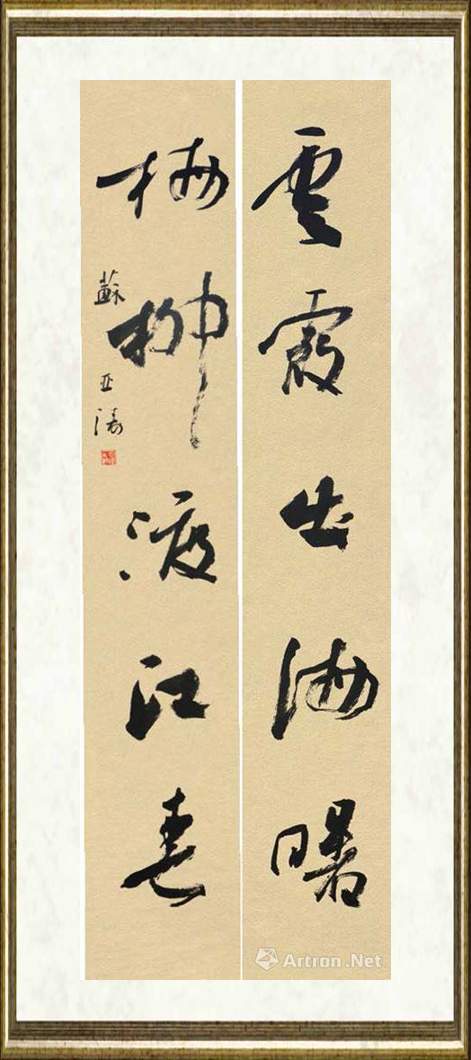 雲霞出海曙
梅柳渡江春
蘇亚涛
Artron.Net